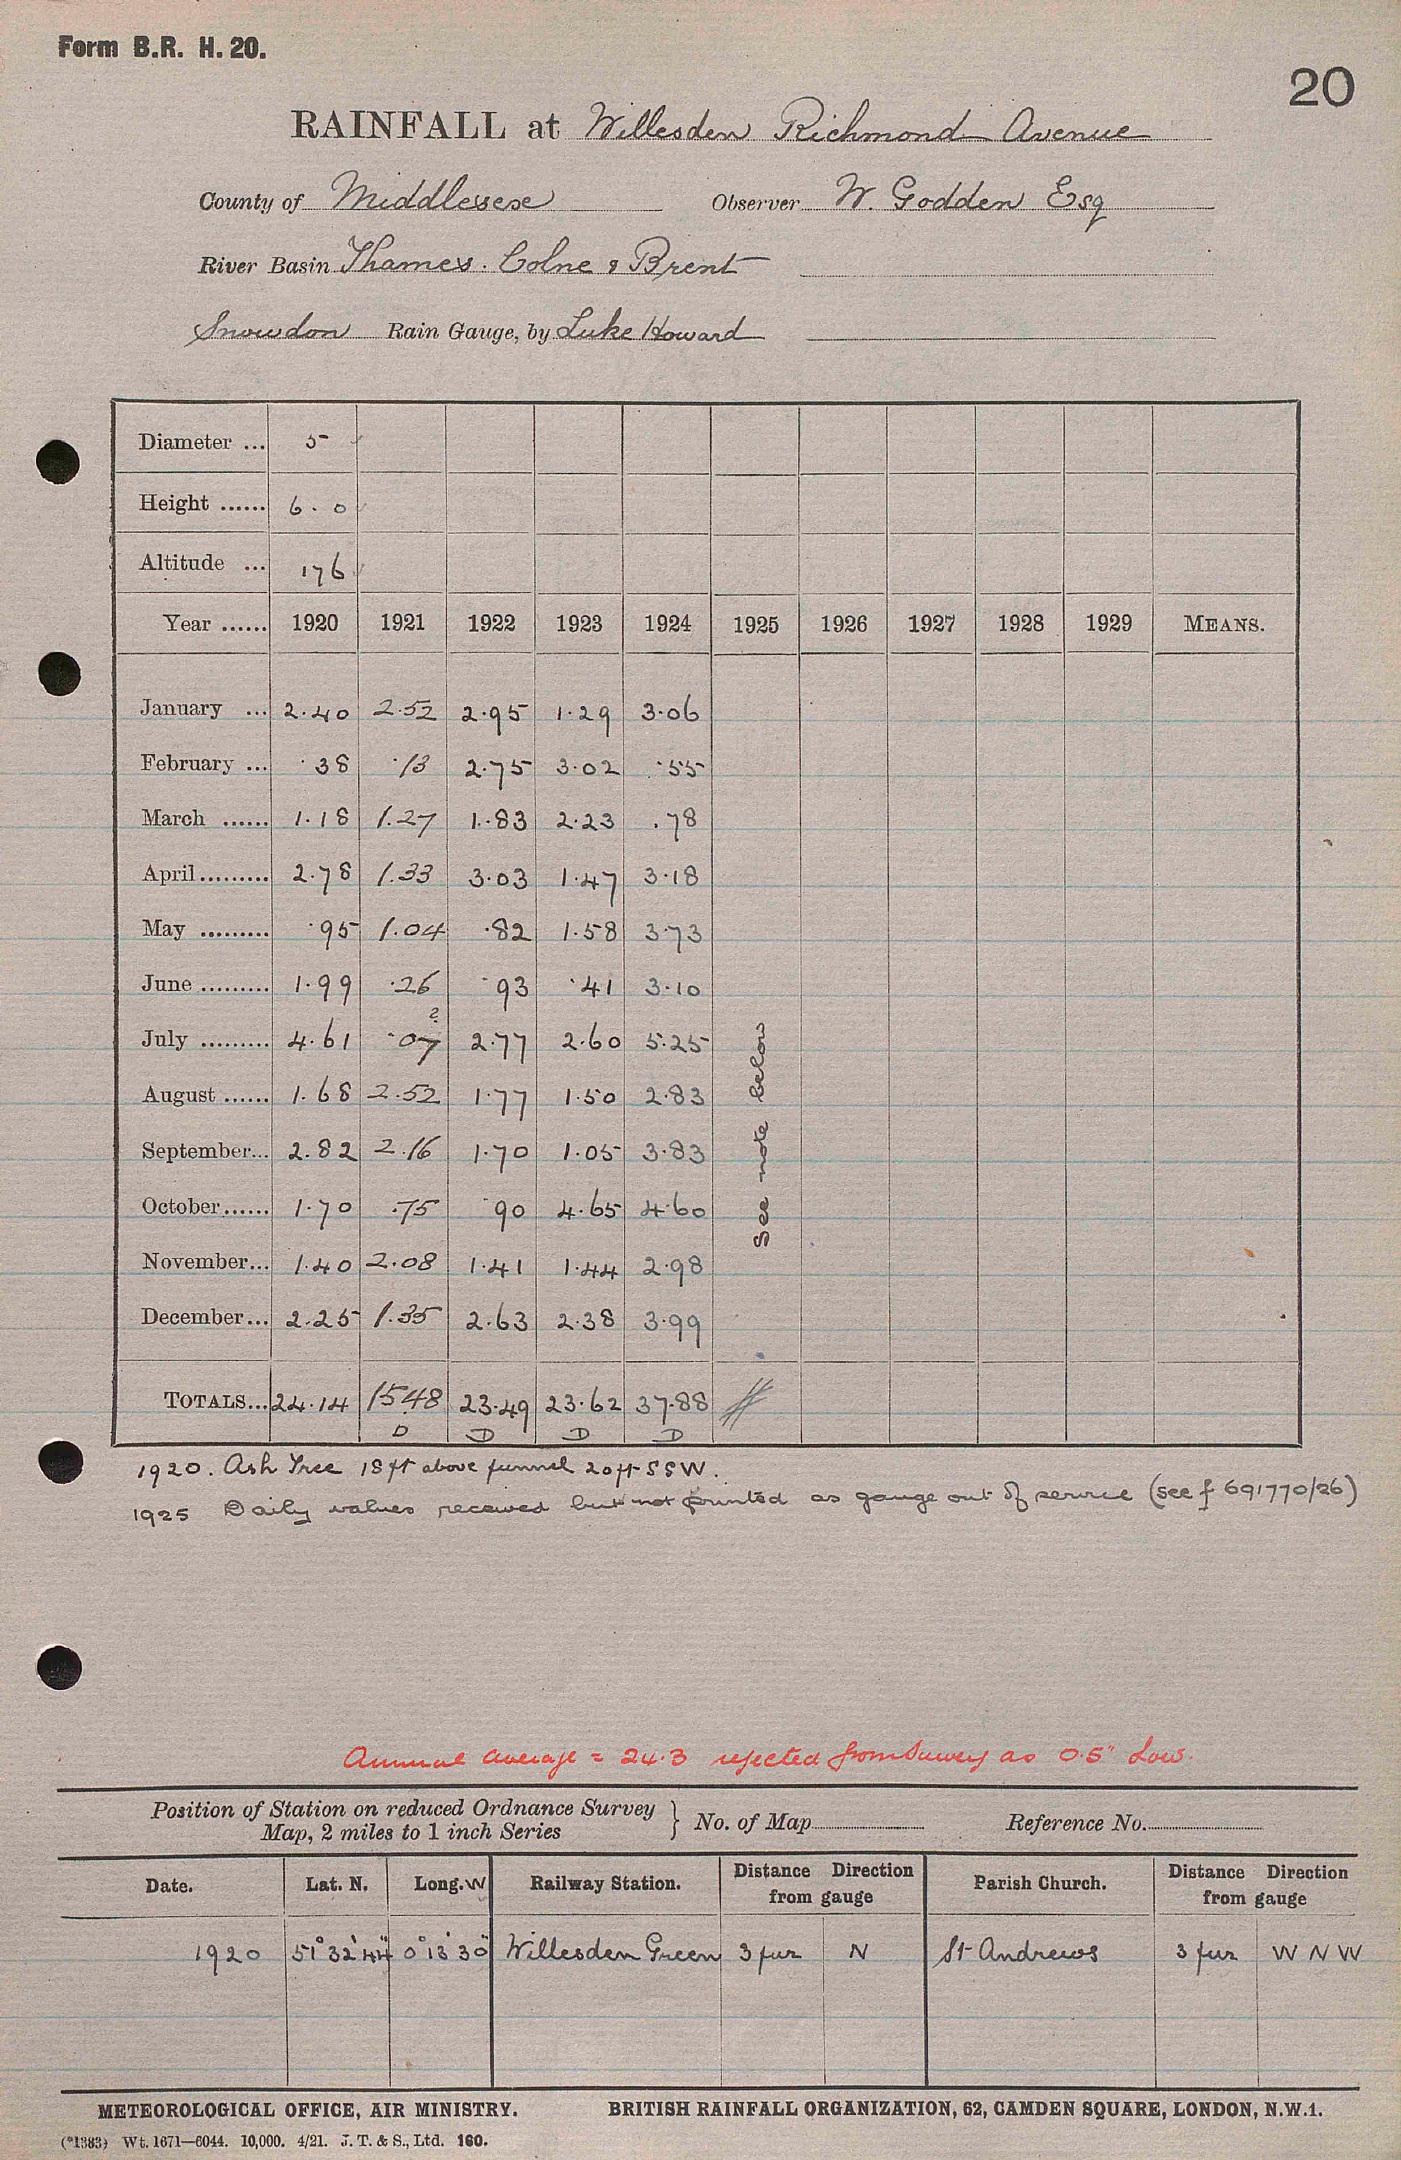 Form B.R. H. 20.
20
RAINFALL at Willesden Richmond Avenue
County of Middlesex Observer W. Godden Esq
River Basin Thames. Colne & Brent
Snowdon Rain Gauge, by Luke Howard
Diameter ... 5
Height ...... 6. 0
Altitude ... 176
Year ...... 1920 1921 1922 1923 1924 1925 1926 1927 1928 1929 MEANS.
January ... 2.40 2.52 2.95 1.29 3.06
February ... .38 .13 2.75 3.02 .55
March ...... 1.18 1.27 1.83 2.23 .78
April ......... 2.78 1.33 3.03 1.47 3.18
May ......... .95 1.04 .82 1.58 3.73
June ......... 1.99 .26 .93 .41 3.10
July ......... 4.61 .07 ? 2.77 2.60 5.25
August ...... 1.68 2.52 1.77 1.50 2.83
September... 2.82 2.16 1.70 1.05 3.83
October...... 1.70 .75 .90 4.65 4.60
November... 1.40 2.08 1.41 1.44 2.98
December... 2.25 1.35 2.63 2.38 3.99
See note below
TOTALS... 24.14 15.48 23.49 23.62 37.88
D D D D
1920. Ash Tree 18 ft above funnel 20 ft SSW.
1925 Daily values received but not printed as gauge out of service (see f 691770/26)
Annual average = 24.3 rejected from Survey as 0.5" Low.
Position of Station on reduced Ordnance Survey } No. of Map Reference No.
Map, 2 miles to 1 inch Series
Date. Lat. N. Long. W Railway Station. Distance Direction from gauge Parish Church. Distance Direction from gauge
1920 51° 32' 44" 0° 13' 30" Willesden Green 3 fur N St Andrews 3 fur W N W
METEOROLOGICAL OFFICE, AIR MINISTRY. BRITISH RAINFALL ORGANIZATION, 62, CAMDEN SQUARE, LONDON, N.W.1.
(*1383) Wt. 1671—6044. 10,000. 4/21. J. T. & S., Ltd. 160.